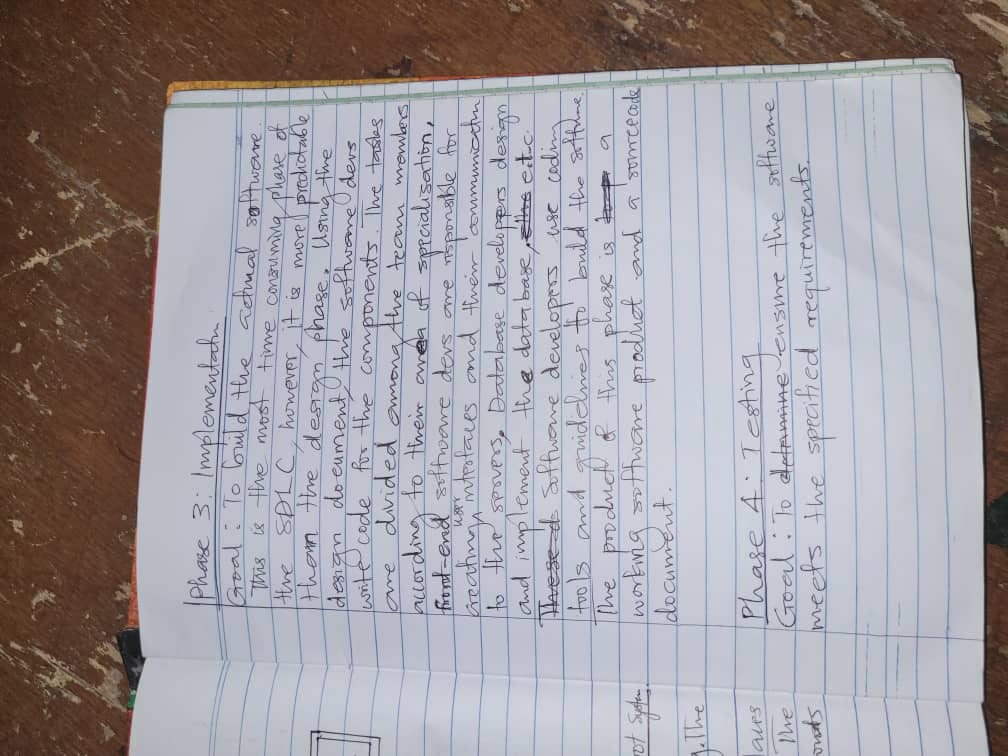 Phase 3: Implementatn
Goal: To build the actual software.
This is the most time consuming phase of
the SDLC, however, it is more predictable
than the design phase. Using the
design document, the software devs
write code for the components. The tasks
are divided among the team members
according to their area of specialisation,
front-end software devs are responsible for
creating user interfaces and their communicatn
to the servers, Database developers design
and implement the database, etc.
These d Software developers use coding
tools and guidelines to build the software.
The product of this phase is a
working software product and a sourcecode
document.
Phase 4: Testing
Goal: To determine ensure the software
meets the specified requirements.
ot System.
g. The
The